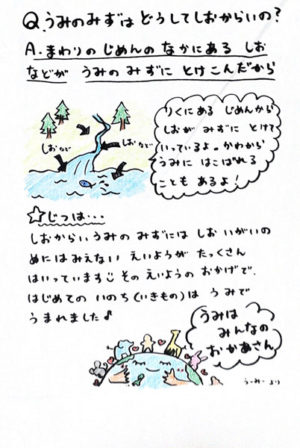 Q.うみのみずは どうしてしおからいの?
A.まわりの じめんの なかにある しお
などが うみの みずに とけこんだから
しおなど
しおなど
しおなど
りくにある じめんから
しおが みずに とけて
いっているよ。かわから
うみに はこばれる
ことも あるよ!
☆じつは・・・
しおからい うみの みずには しお いがいの
めには みえない えいようが たっくさん
はいっています その えいようの おかげで、
はじめての いのち(いきもの)は うみで
うまれました♪
うみは
みんなの
おかあさん
うーみー より